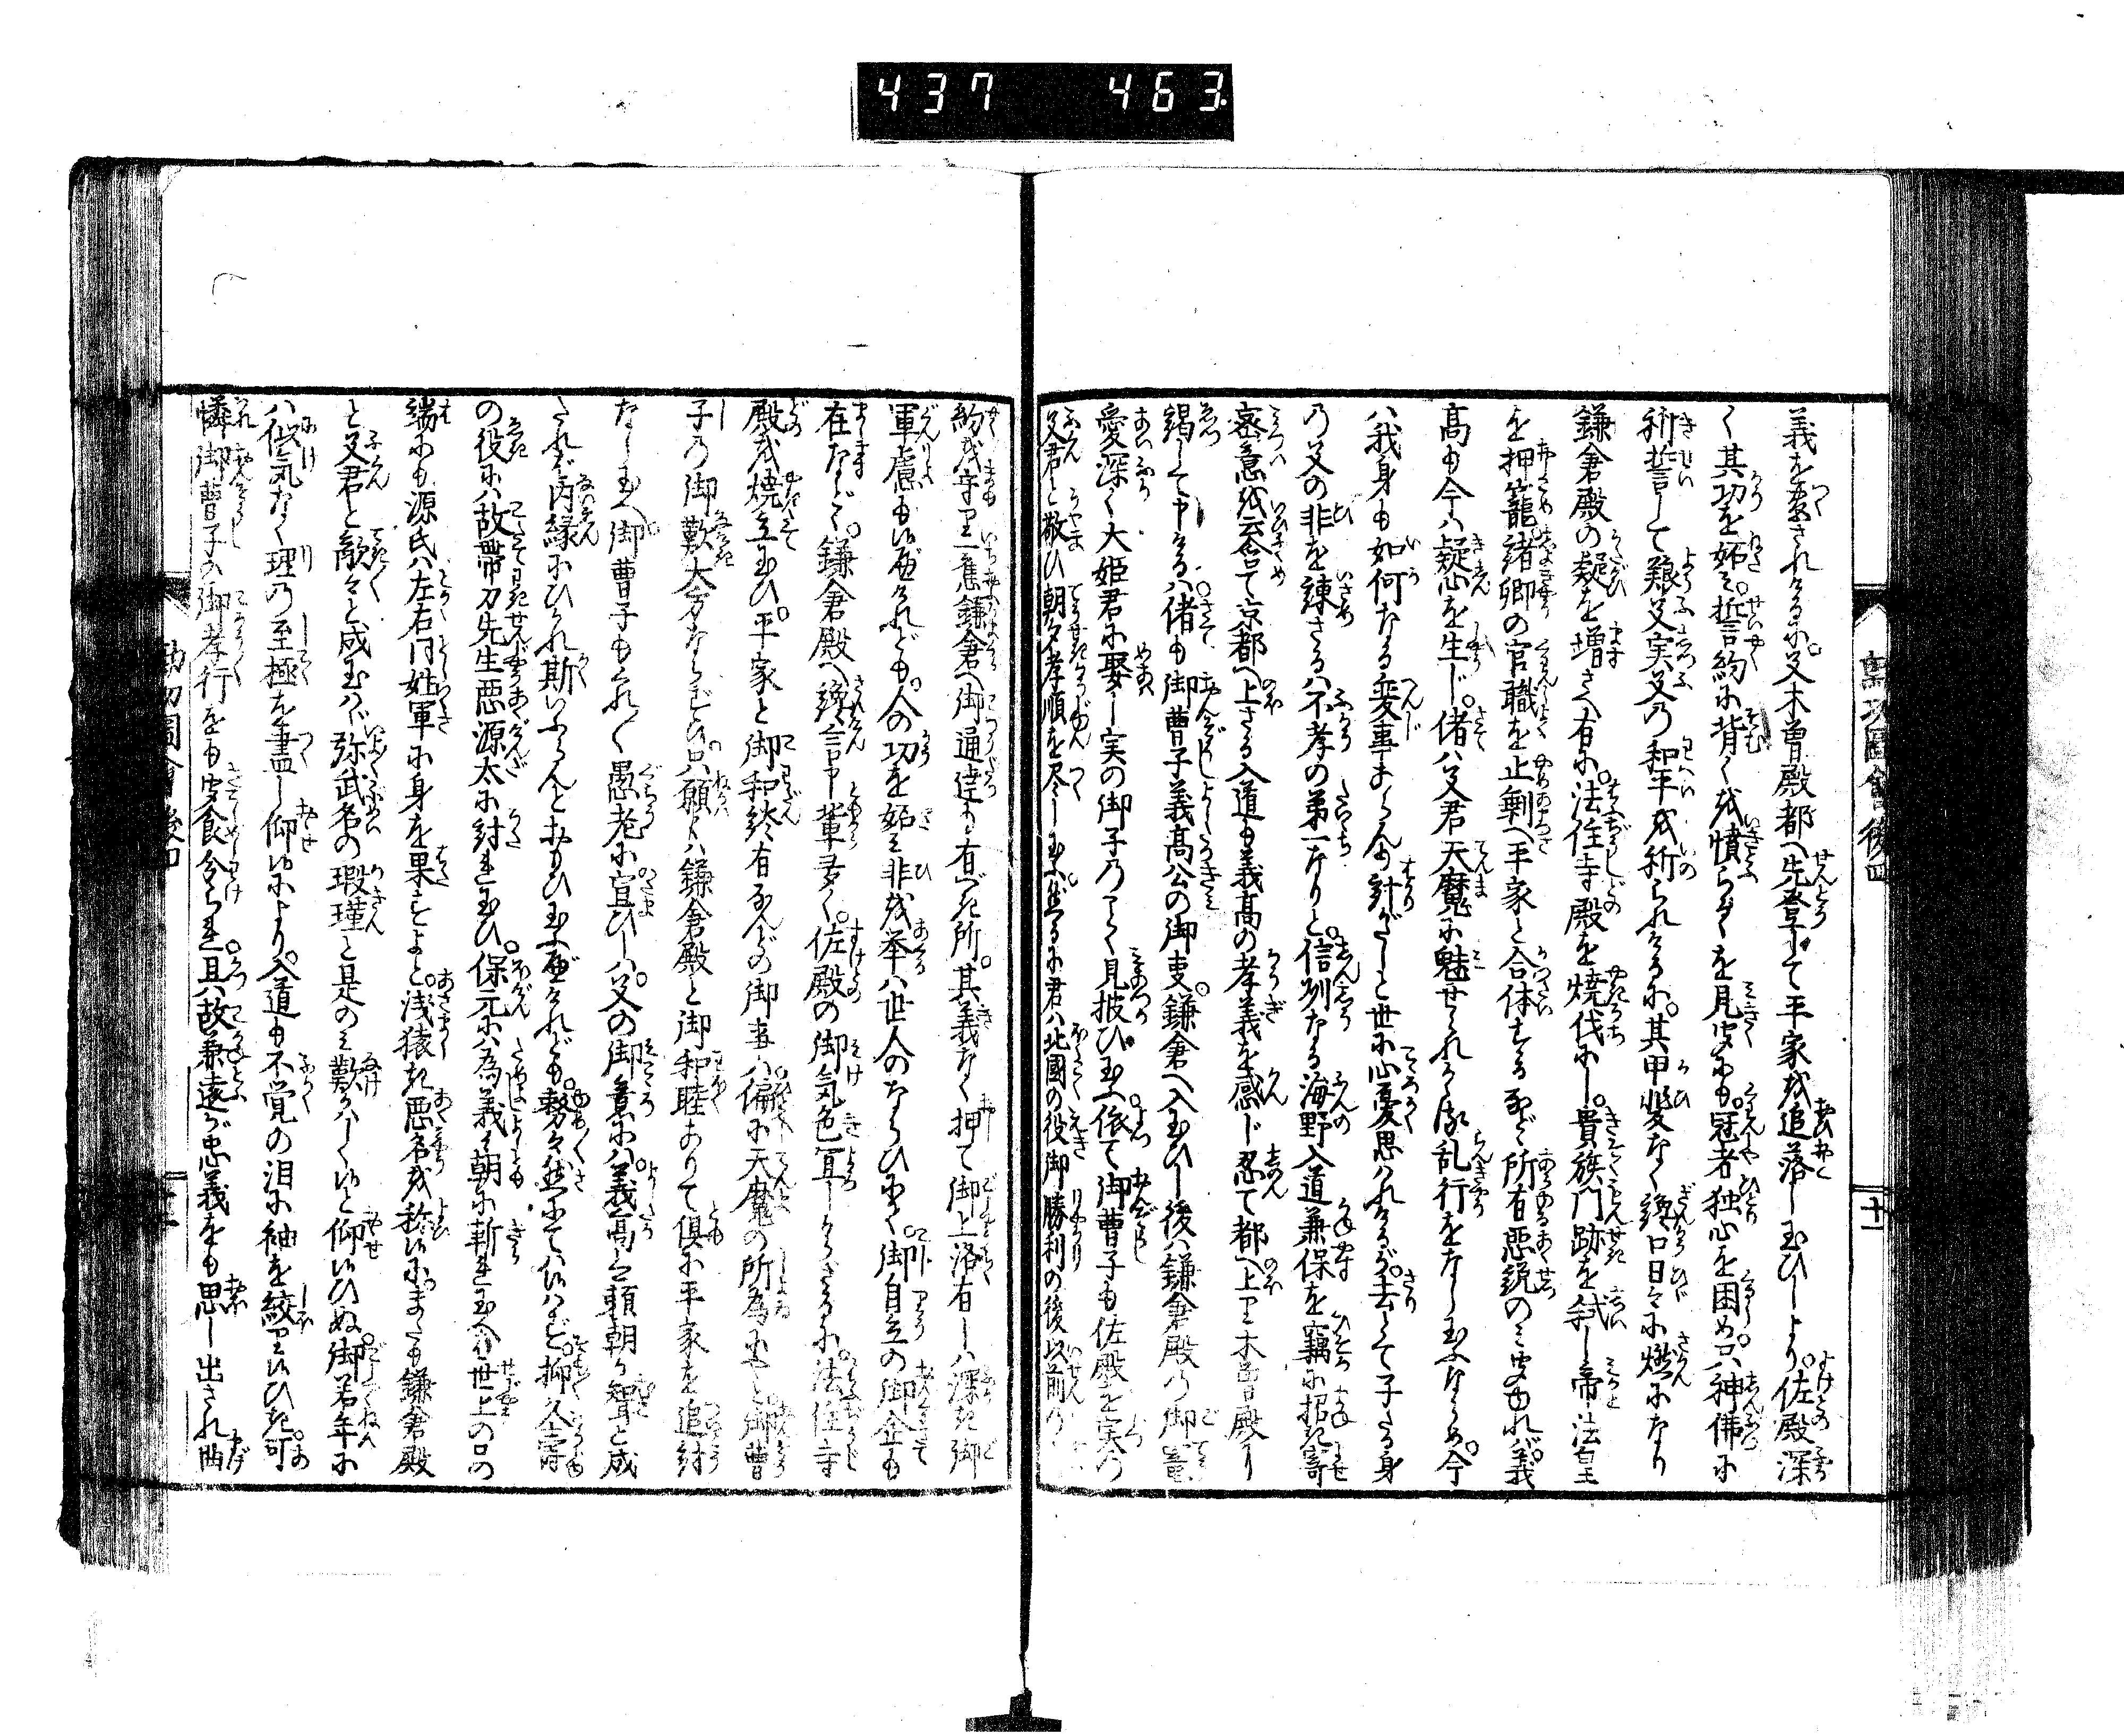 437 463
義を尽されけるに。又木曽殿都へ先登して平家を追落し玉ひしより。佐殿深
く其功を妬み。誓約に背くを憤らずを見聞にも。冠者独心を困め。只神佛に
祈誓して親父実父の和平を祈られけるに。其甲斐なく讒口日々に燃になり
鎌倉殿の疑を増さへ有に。法住寺殿を焼伐にし。貴族門跡を弑し帝法皇
を押籠諸卿の官職を止剰へ平家と合体する など所有悪説のミ聞ゆれバ。義
高も今ハ疑心を生じ。偖ハ父君天魔に魅せられ給ふ乱行をなし玉ふならめ。今
ハ我身も如何なる変事あらんも計がたしと世に心憂思ハれけるが。去とて子たる身
乃父の非を諌さるハ不孝の第一なりと。信州なる海野入道兼保を竊に招き寄
密意を云含て京都へ上さる入道も義高の孝義を感じ忍て都へ上り木曽殿に
謁して申けるハ。偖も御曹子義高公の御事。鎌倉へ入玉ひし後ハ鎌倉殿乃御寵
愛深く大姫君に娶し実の御子乃ごとく見披ひ玉ふ。依て御曹子も佐殿を実乃
父君と敬ひ朝夕孝順を尽し玉ふ。然るに君ハ北國の役御勝利の後以前乃
約を守り一旦鎌倉へ御通達も有べき所。其義なく押て御上洛有しハ深き御
軍慮も候べけれども。人の功を妬み非を挙ハ世人のならひにて。御自立の御企も
在など。鎌倉殿へ讒言申輩多く。佐殿の御気色宜しからざるに。法住寺
殿を焼立玉ひ。平家と御和談有なんどの御事ハ。偏に天魔の所為にやと御曹
子乃御歎大方ならず只願くハ鎌倉殿と御和睦ありて倶に平家を追討
なし玉へ御曹子もくれ〲愚老に宣ひしハ。父の御意にハ義高こそ頼朝の聟と成
たれバ内縁にひかれ斯いふらんとおもひ玉ふべけれども。努々然にてハ候ハず。抑久寿
の役にハ故帯刀先生悪源太に討れ玉ひ。保元にハ為義よ朝に斬れ玉へバ世上の口の
端にも源氏ハ左右同姓軍に身を果すよと。浅猿き悪名を称候に。またも鎌倉殿
と父君と敵々と成玉ハヾ弥武名の瑕瑾と是のミ歎かハしく候と仰候ひぬ。御若年に
ハ似気なく理乃至極を盡し仰候により。入道も不覚の泪に袖を絞り候ひき。可
憐御曹子の御孝行をも聞食分られ。且ハ故兼遠が忠義をも思し出され曲
勲功圖會後四
十一